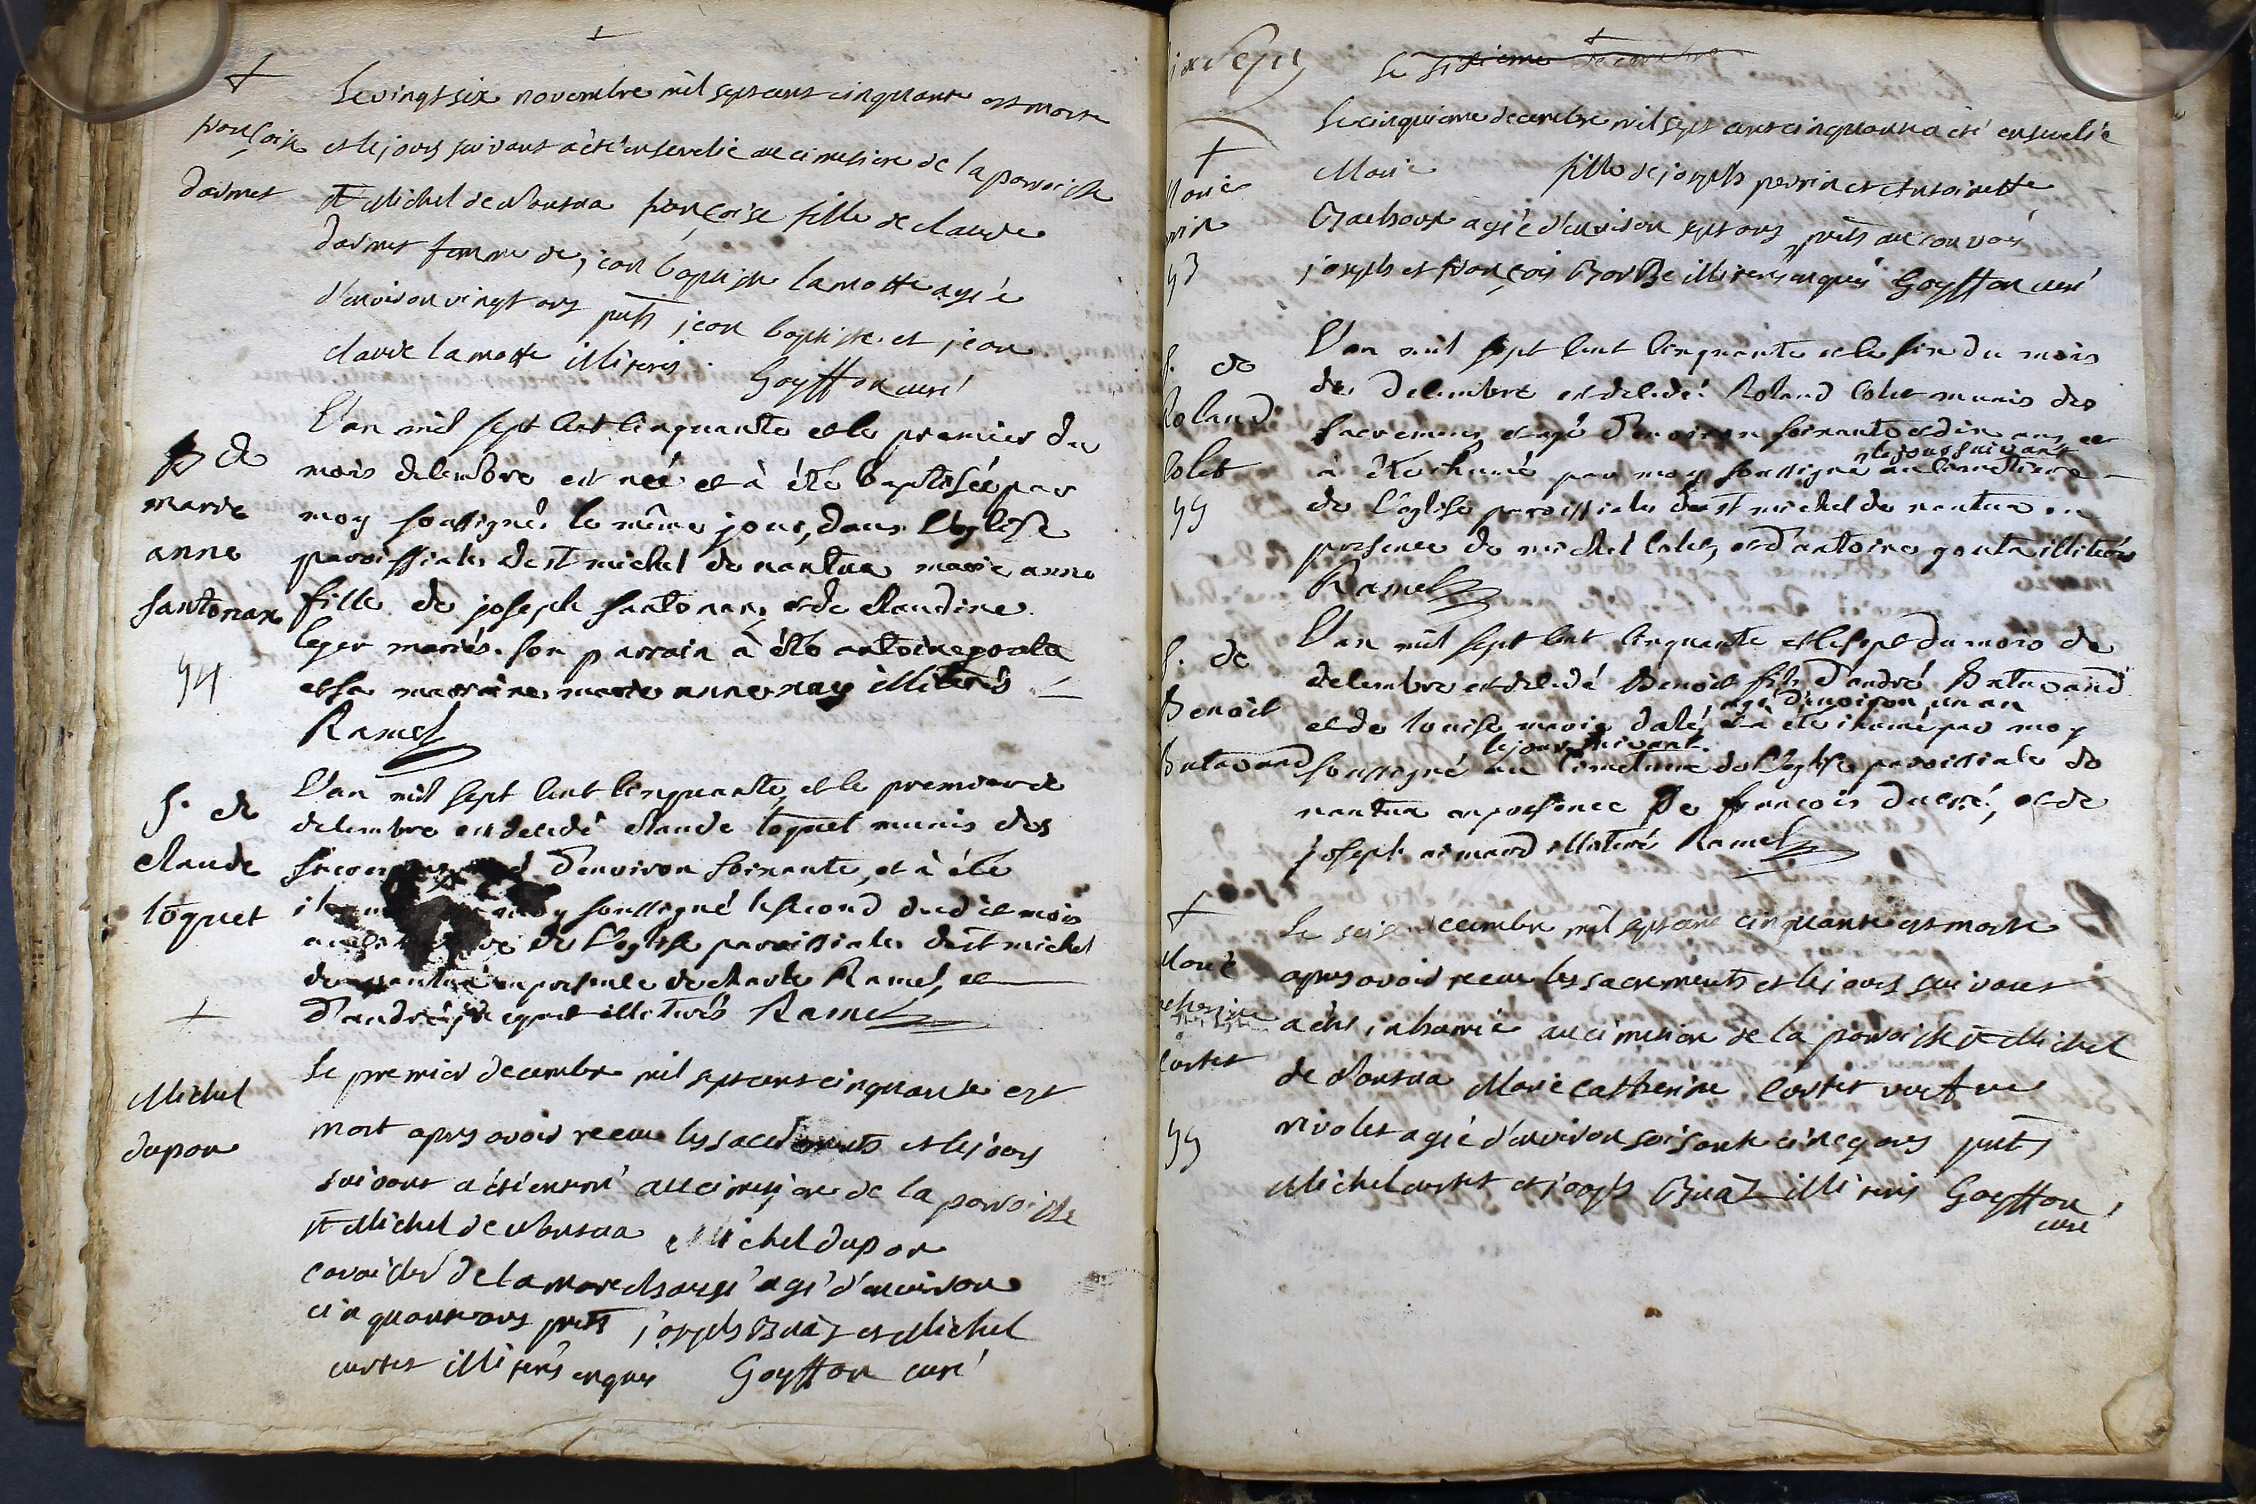 Le vingt six novembre mil sept cent cinquante est morte
françoise
et le jour suivant a été ensevelie au cimetiere de la parroisse
darmet
st Michel de Nantua françoise fille de claude
darmet femme de jean baptiste lamotte agée
d'environ vingt ans pnts jean baptiste et jean
claude lamotte illiterés Goyffon curé
L'an mil sept cent cinquante et le premier du
B de
mois decembre est néé et à été baptisée par
marie
moy soussigné le même jour, dans l'eglise
anne
paroissiale de st michel de nantua marie anne
santonax
fille de joseph santonax, et de claudine
leger mariés. son parrain à été antoine gouta
44
et sa marraine marie anne nay illiterés
Ramel
L'an mil sept cent cinquante, et le premier de
S. de
decembre est decedé claude coquet munis des
claude
d'environ soixante, et à été
coquet
moy soussigné le second dudit mois
de l'eglise paroissiale de st michel
de nantua en presence de charle Ramel, et
d'andré illiterés Ramel
Le premier decembre mil sept cent cinquante est
Michel
mort apres avoir receu les sacrements et le jour
dupon
suivant a été enterré au cimetiere de la parroisse
st Michel de Nantua Michel dupon
cavailier de la marechaussé agé d'environ
cinquante ans pnts joseph Buaz et Michel
curtet illiterés enquis Goyffon curé
Le sixieme decembre
Le cinquieme decembre mil sept cent cinquante a été ensevelie
Marie
Marie fille de joseph perrin et Antoinette
agée d'environ sept ans pnts au convoi
joseph et françois illiterés enquis Goyffon curé
L'an mil sept cent cinquante et le six du mois
S. de
de decembre est decedé Roland colet munis des
Roland
sacremens, et agé d'environ soixante et dix ans, et
colet
le jour suivant
à été inhumé par moy soussigné au cimetiere
de l'eglise paroissiale de st michel de nantua en
presence de michel colet, et d'antoine gouta illiterés
Ramel
L'an mil sept cent cinquante et le sept du mois de
S. de
decembre est decedé Benoit fils d'andré Butavand
Benoit
agé d'environ un an
et de louise marie dalé, et a été inhumé par moy
Butavand
le jour suivant
soussigné au cimetiere de l'eglise paroissiale de
nantua en presence de françois ducré, et de
joseph aimard illiteré Ramel
Le seise decembre mil sept cent cinquante est morte
Marie
apres avoir receu les sacrements et le jour suivant
catherine
a été inhumée au cimetiere de la parroisse st Michel
curtet
de Nantua Marie catherine Curtet veufve
55
rivolet agée d'environ soisante cinq ans pnts
Michel curtet et joseph Buaz illiterés Goyffon
curé